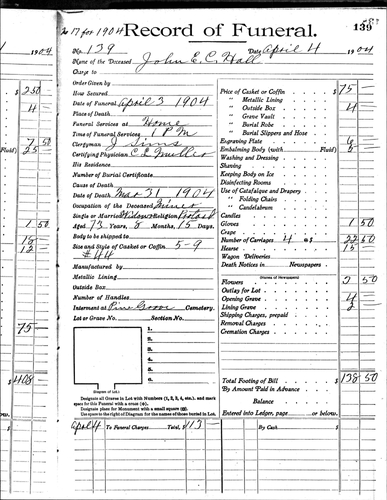 1904
No 17 for 1904 Record of Funeral. 139
No. 139 Date April 4 1904
Name of the Deceased John E. C. Hall
Charge to
Order Given by
How Secured
Date of Funeral April 3 1904
Place of Death
Funeral Services at Home
Time of Funeral Services 1 PM
Clergyman J Sims
Certifying Physician
His Residence
Number of Burial Certificate
Cause of Death
Date of Death Mar 31 1904
Occupation of the Deceased Miner
Single or Married Widower Religion
Aged 73 Years, 8 Months, 15 Days.
Body to be shipped to
Size and Style of Casket or Coffin 5-9
#44
Manufactured by
Metallic Lining
Outside Box
Number of Handles
Interment at Pine Grove Cemetery.
Lot or Grave No. Section No.
1.
2.
3.
4.
5.
6.
(Diagram of Lot.)
Designate all Graves in Lot with Numbers (1, 2, 3, 4, etc.), and mark
space for this Funeral with a cross (+).
Designate place for Monument with a small square (□).
Use space to the right of Diagram for the names of those buried in Lot.
Price of Casket or Coffin $ 75 —
" Metallic Lining
" Outside Box 4
" Grave Vault
" Burial Robe
" Burial Slippers and Hose
Engraving Plate
Embalming Body (with Fluid)
Washing and Dressing
Shaving
Keeping Body on Ice
Disinfecting Rooms
Use of Catafalque and Drapery
" Folding Chairs
" Candelabrum
Candles
Gloves 1 50
Crape
Number of Carriages 4 @ $ 22 50
Hearse 15
Wagon Deliveries
Death Notices in Newspapers
(Names of Newspapers)
Flowers 2 50
Outlay for Lot
Opening Grave 4
Lining Grave 2
Shipping Charges, prepaid
Removal Charges
Cremation Charges
Total Footing of Bill $ 138 50
By Amount Paid in Advance
Balance
Entered into Ledger, page or below.
April 4 To Funeral Charges Total, $113 — By Cash $
$ 250
4
7 50
Fluid) 25
1 50
18
12
75
$ 408